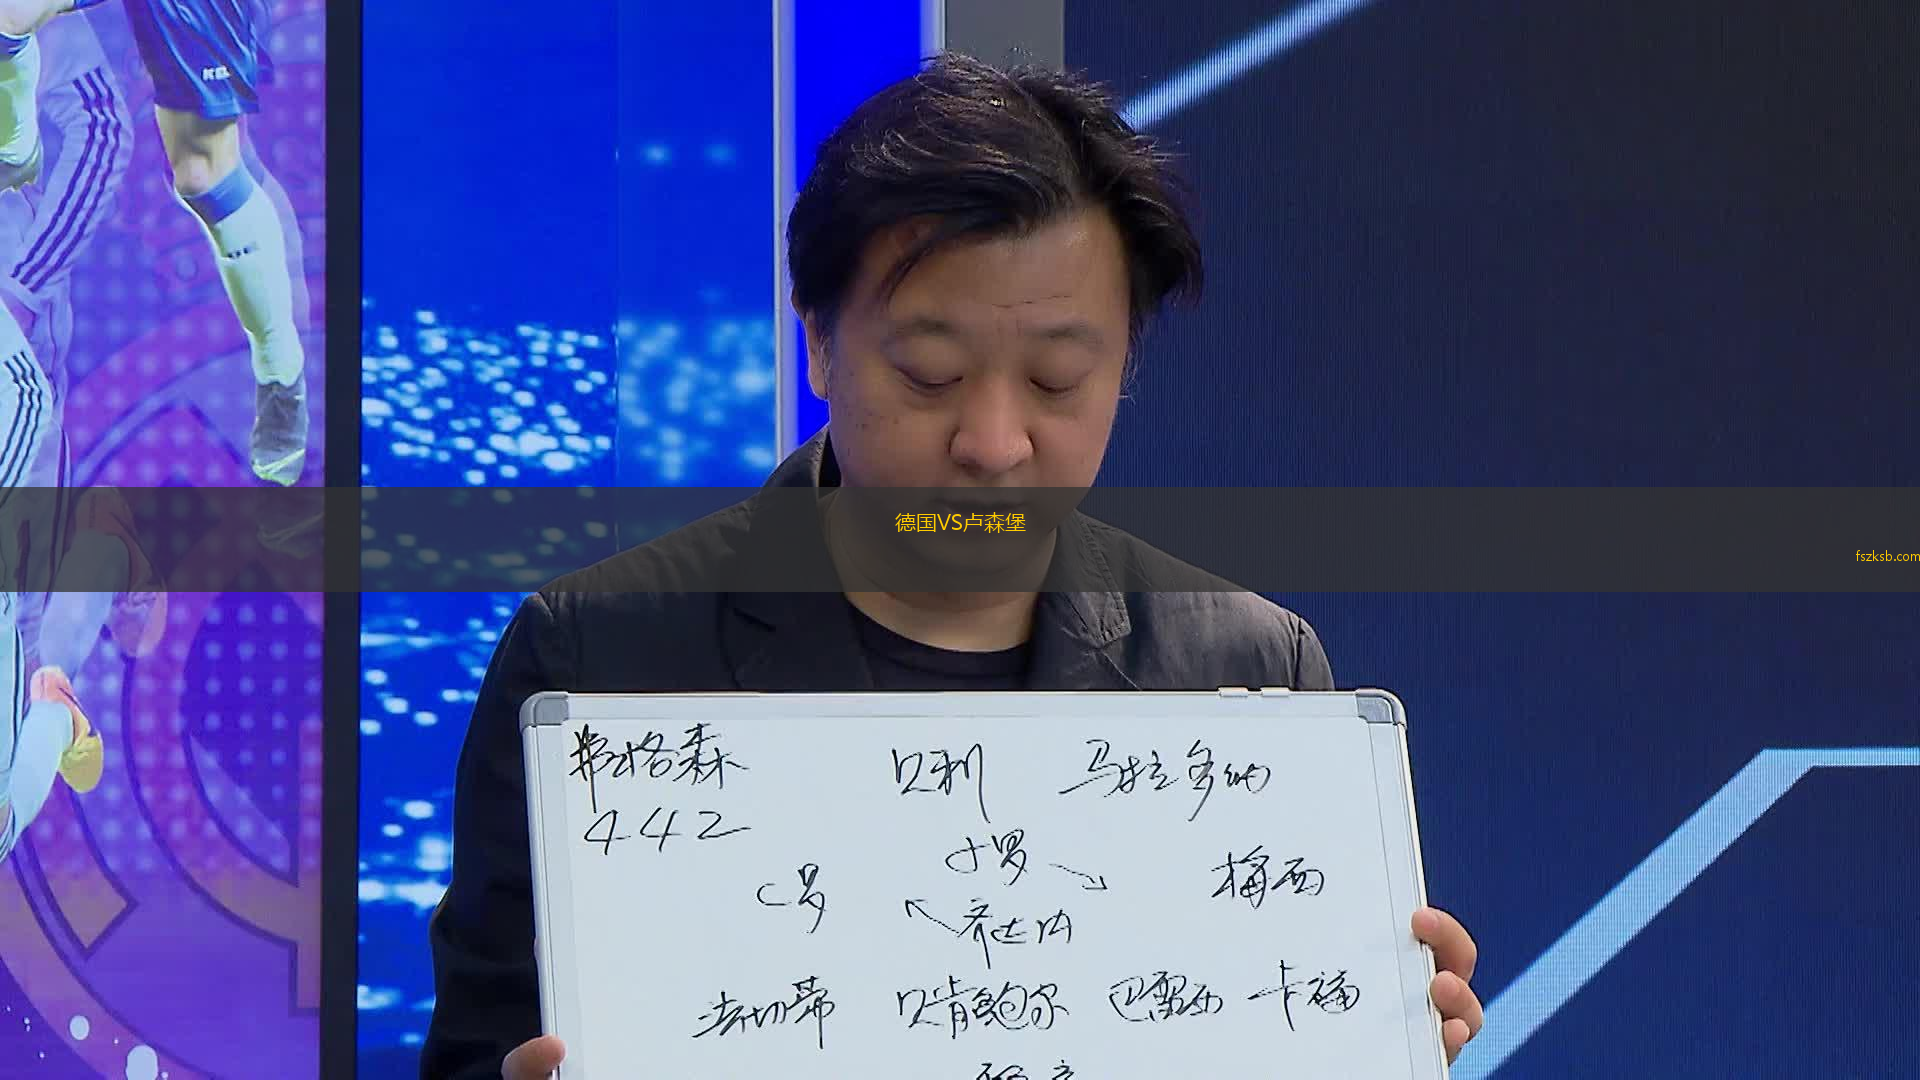 KEL
德国VS卢森堡
fszksb.com
弗格森 贝利 马拉多纳
442
小罗
C罗 梅西
齐达内
法切蒂 贝肯鲍尔 巴雷西 卡福